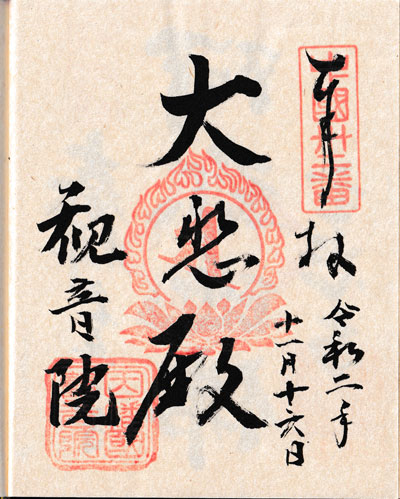 奉拝
令和二年
十一月十六日
大悲殿
観音院